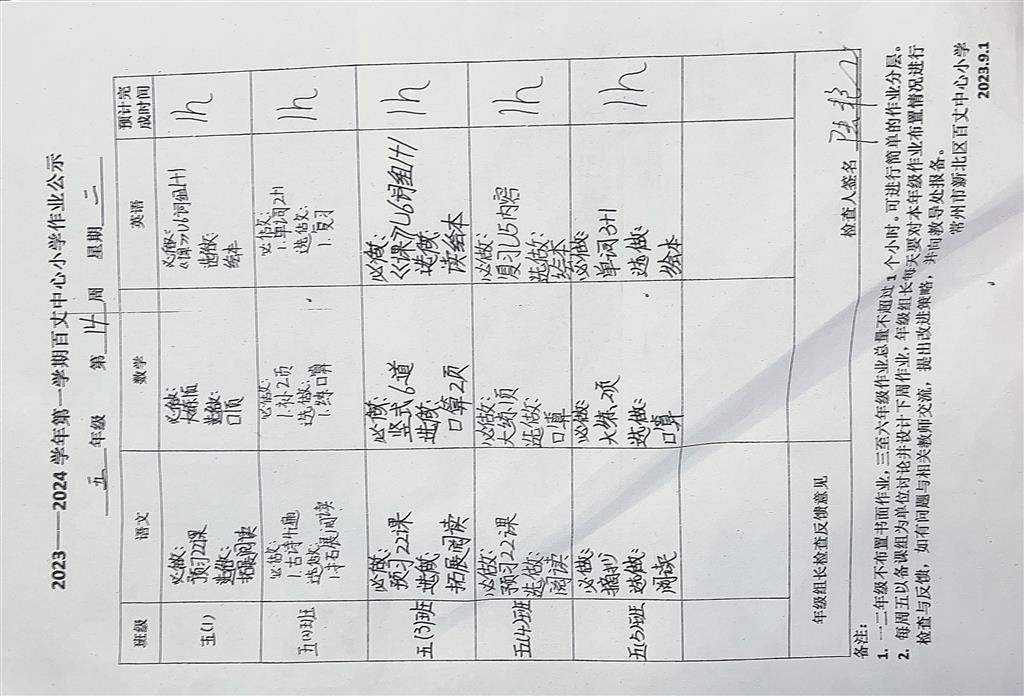 2023——2024 学年第一学期百丈中心小学作业公示
五 年级 第 14 周 星期 二
班级 语文 数学 英语 预计完成时间
五(1)
必做:
预习22课
选做:
拓展阅读
必做:
大练1页
选做:
口1页
必做:
U6词组1+1
选做:
绘本
1h
五(2)班
必做:
1.古诗4遍
选做:
1.拓展阅读
必做:
1.补2页
选做:
1.练口算
必做:
1.单词2+1
选做:
1.复习
1h
五(3)班
必做:
预习22课
选做:
拓展阅读
必做:
竖式6道
选做:
口算2页
必做:
《课》U6词组1+1
选做:
读绘本
1h
五(4)班
必做:
预习22课
选做:
阅读
必做:
大练1页
选做:
口算
必做:
复习U5内容
选做:
绘本
1h
五(5)班
必做:
摘抄
选做:
阅读
必做:
大练2页
选做:
口算
必做:
单词3+1
选做:
绘本
1h
年级组长检查反馈意见
检查人签名
备注:
1. 一二年级不布置书面作业,三至六年级作业总量不超过 1 个小时。可进行简单的作业分层。
2. 每周五以备课组为单位讨论并设计下周作业,年级组长每天要对本年级作业布置情况进行
检查与反馈,如有问题与相关教师交流,提出改进策略,并向教导处报备。
常州市新北区百丈中心小学
2023.9.1